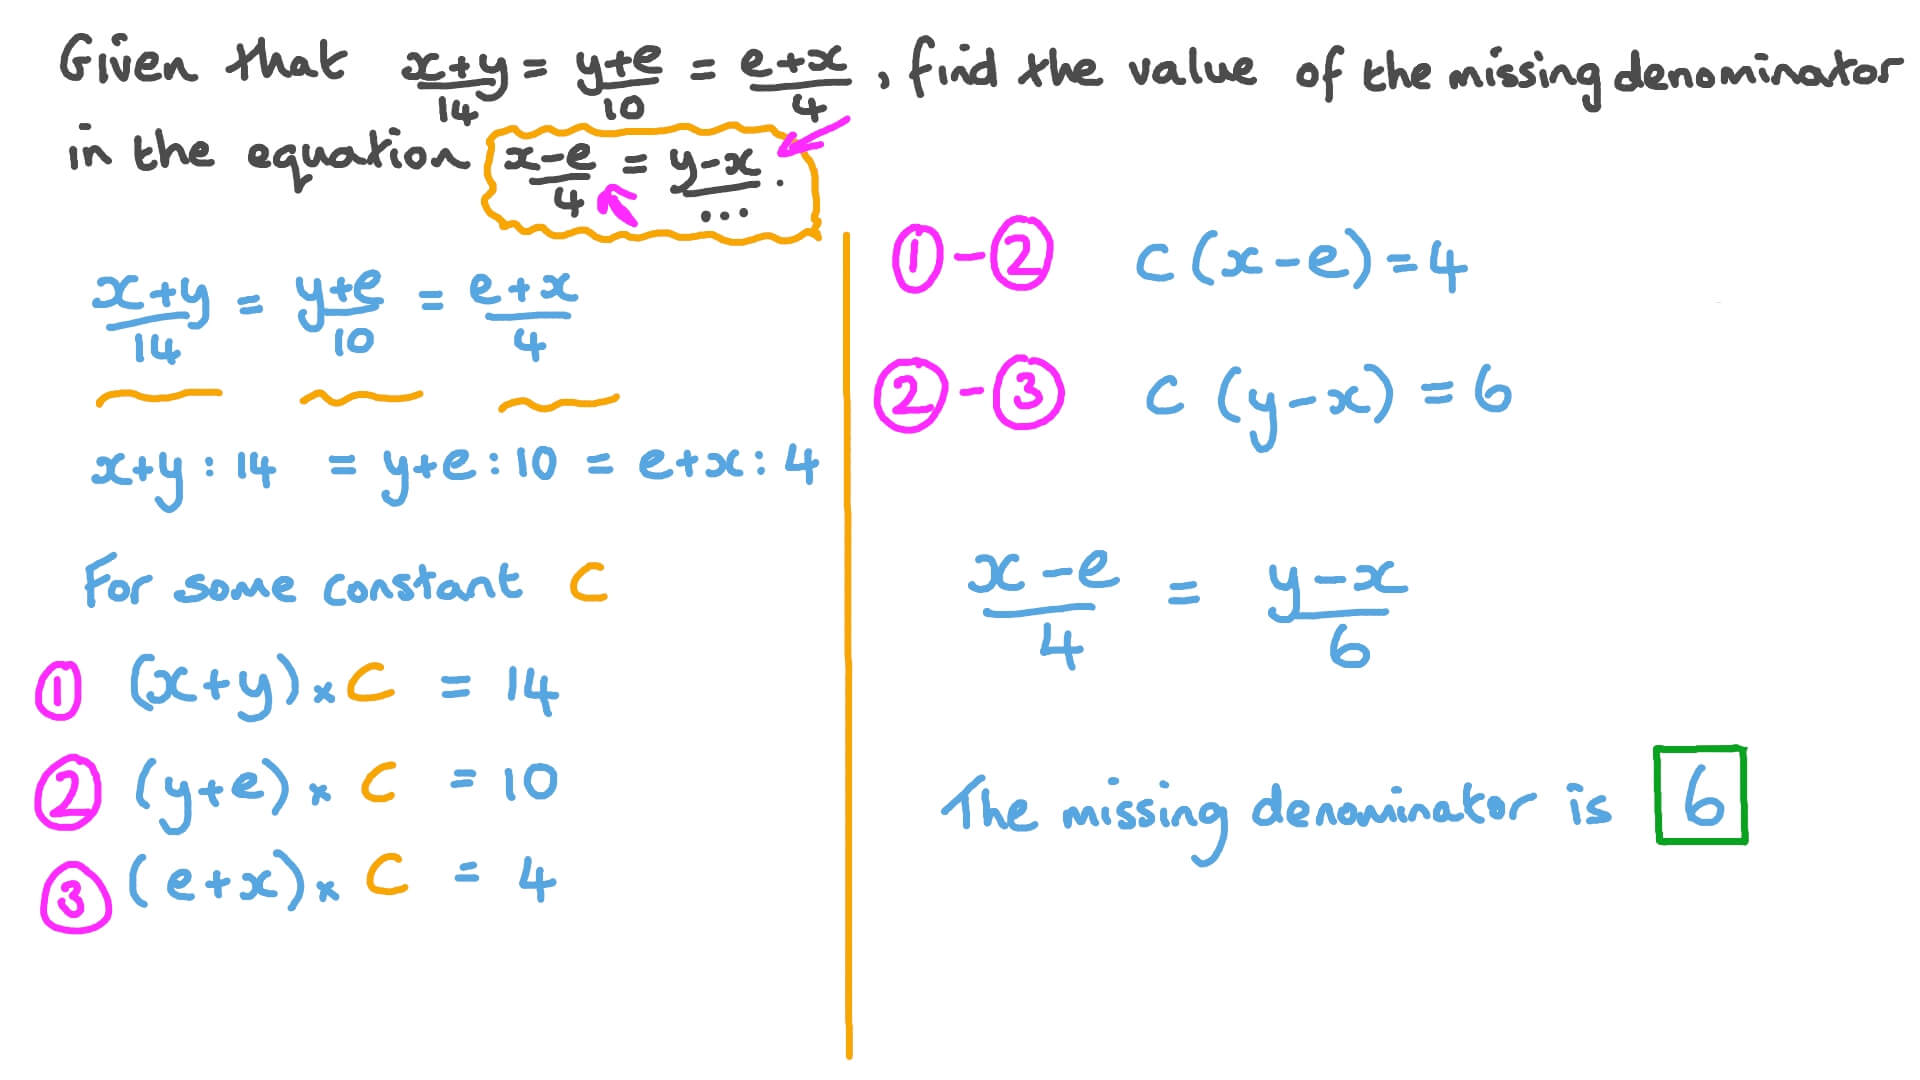 Given that x+y/14 = y+e/10 = e+x/4, find the value of the missing denominator
in the equation x-e/4 = y-x/... .
x+y/14 = y+e/10 = e+x/4
x+y : 14 = y+e : 10 = e+x : 4
For some constant C
① (x+y) × C = 14
② (y+e) × C = 10
③ (e+x) × C = 4
① - ② C (x-e) = 4
② - ③ C (y-x) = 6
x-e/4 = y-x/6
The missing denominator is 6